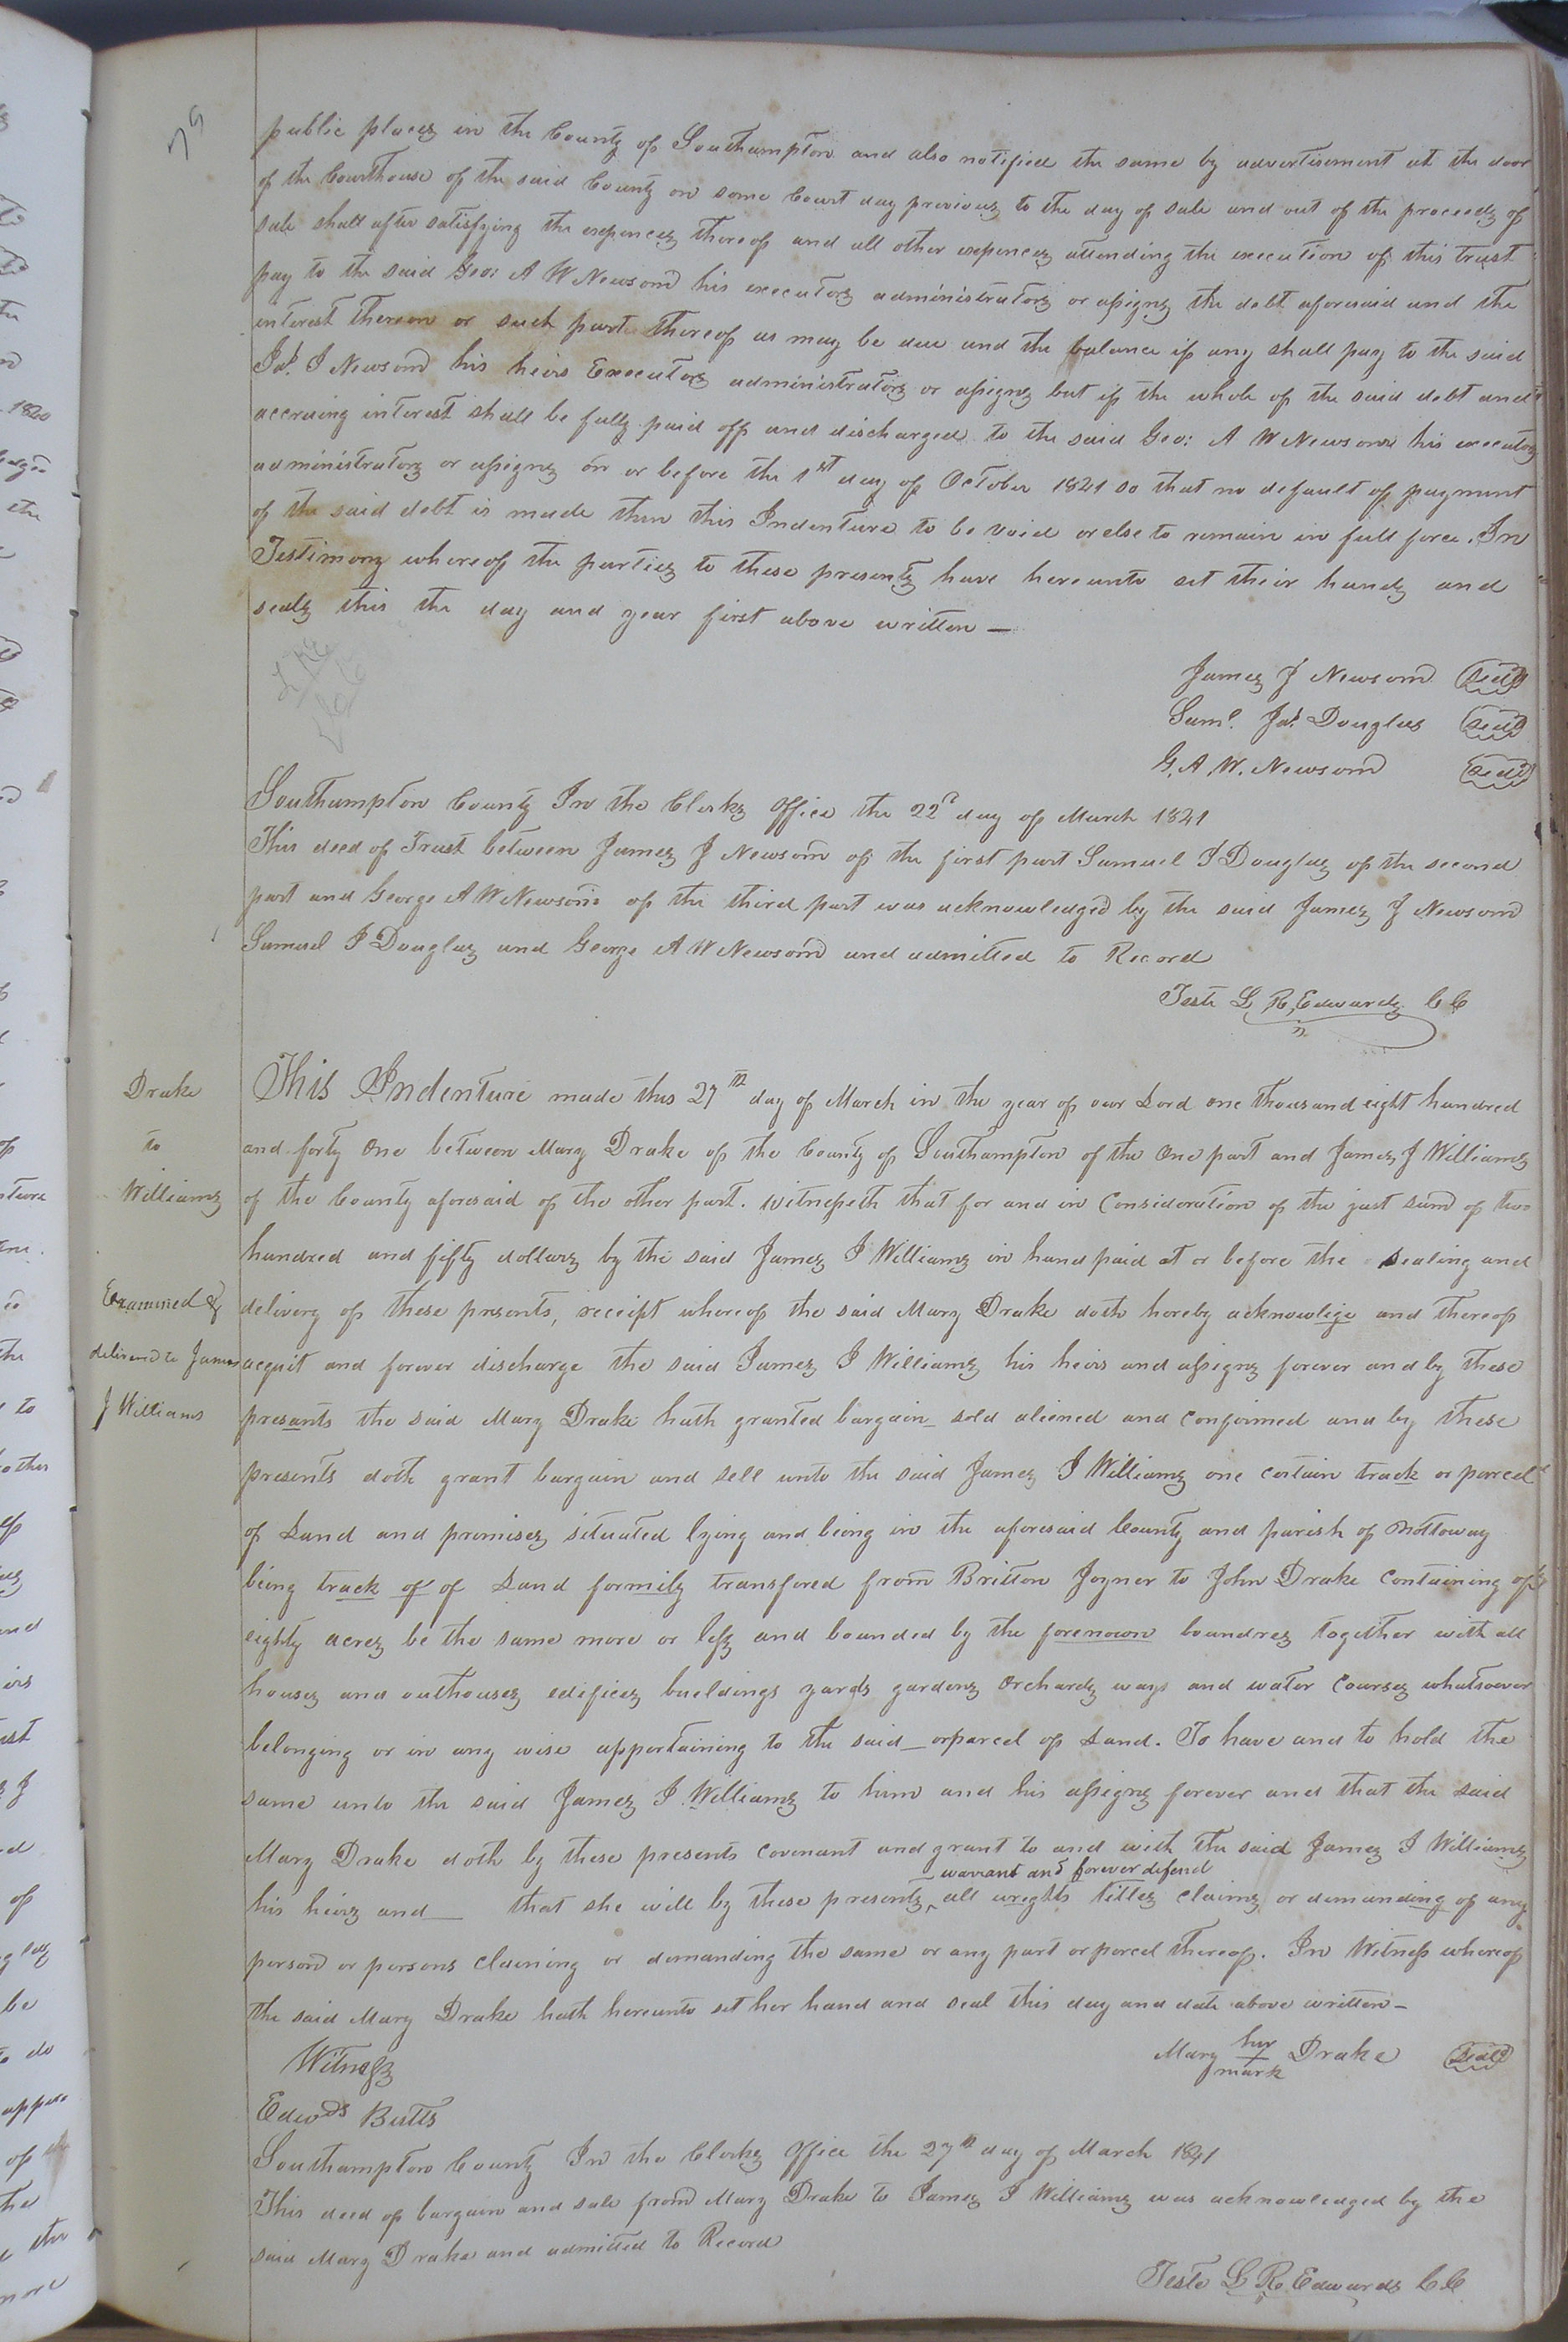 79
public places in the County of Southampton and also notified the same by advertisement at the door
of the Courthouse of the said County on some Court day previous to the day of sale and out of the proceeds of
sale shall after satisfying the expences thereof and all other expences attending the execution of this trust
pay to the said Geo: A W Newsom his executors administrators or assigns the debt aforesaid and the
interest thereon or such part thereof as may be due and the balance if any shall pay to the said
Jas. J Newsom his heirs Executors administrators or assigns but if the whole of the said debt and
accruing interest shall be fully paid off and discharged to the said Geo: A W Newsom his executors
administrators or assigns on or before the 1st day of October 1841 so that no default of payment
of the said debt is made then this Indenture to be void or else to remain in full force. In
Testimony whereof the parties to these presents have hereunto set their hands and
seals this the day and year first above written —
James J Newsom Seal
Saml. Jas. Douglas Seal
G. A. W. Newsom Seal
Southampton County In the Clerks Office the 22d day of March 1841
This deed of Trust between James J Newsom of the first part Samuel J Douglas of the second
part and George A W Newsom of the third part was acknowledged by the said James J Newsom
Samuel J Douglas and George A W Newsom and admitted to Record
Teste L R Edwards CC
Drake
to
Williams
Examined &
delivered to James
J Williams
This Indenture made this 27th day of March in the year of our Lord one thousand eight hundred
and forty One between Mary Drake of the County of Southampton of the One part and James J Williams
of the County aforesaid of the other part. Witnesseth that for and in Consideration of the just sum of two
hundred and fifty dollars by the said James J Williams in hand paid at or before the sealing and
delivery of these presents, receipt whereof the said Mary Drake doth hereby acknowlige and thereof
acquit and forever discharge the said James J Williams his heirs and assigns forever and by these
presants the said Mary Drake hath granted bargain_ sold aliened and Confirmed and by these
presents doth grant bargain and sell unto the said James J Williams one certain track or parcel
of Land and premises situated lying and being in the aforesaid County and parish of Nottoway
being track of of Land formily transfered from Britton Joyner to John Drake Containing of
eighty acres be the same more or less and bounded by the forenown boundres together with all
houses and outhouses edifices buildings yards gardens Orchards ways and water Courses whatsoever
belonging or in any wise appertaining to the said _ or parcel of Land. To have and to hold the
same unto the said James J Williams to him and his assigns forever and that the said
Mary Drake doth by these presents Covenant and grant to and with the said James J Williams
his heirs and _ that she will by these presents, ^ warrant and forever defend all wrights titles claims or demanding of any
person or persons claiming or demanding the same or any part or parcel thereof. In Witness whereof
the said Mary Drake hath hereunto set her hand and seal this day and date above written —
Mary her + mark Drake Seal
Witness
Edwds Butts
Southampton County In the Clerks Office the 27th day of March 1841
This deed of bargain and sale from Mary Drake to James J Williams was acknowledged by the
said Mary Drake and admitted to Record
Teste L R Edwards CC